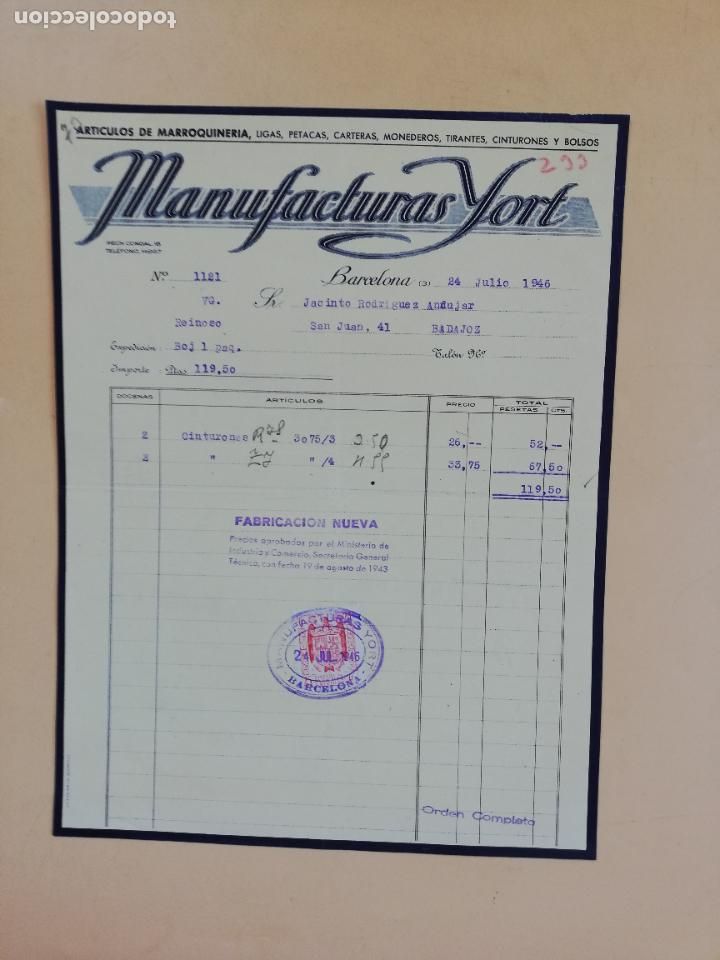 todocoleccion
ARTICULOS DE MARROQUINERIA, LIGAS, PETACAS, CARTERAS, MONEDEROS, TIRANTES, CINTURONES Y BOLSOS
233
Manufacturas Yort
TELÉFONO
Nº 1121 Barcelona (3) 24 Julio 1946
VG. Sr. Jacinto Rodriguez Andujar
Reinoso San Juan, 41 BADAJOZ
Expedición Boj 1 paq. Talón Nº
Importe Ptas 119,50
DOCENAS ARTICULOS PRECIO TOTAL
PESETAS CTS.
2 Cinturones 3075/3 26,-- 52,--
2 " "/4 33,75 67,50
119,50
FABRICACION NUEVA
Precios aprobados por el Ministerio de
Industria y Comercio, Secretaria General
Técnica, con fecha 19 de agosto de 1943
MANUFACTURAS YORT
24 JUL. 1946
BARCELONA
Orden Completa